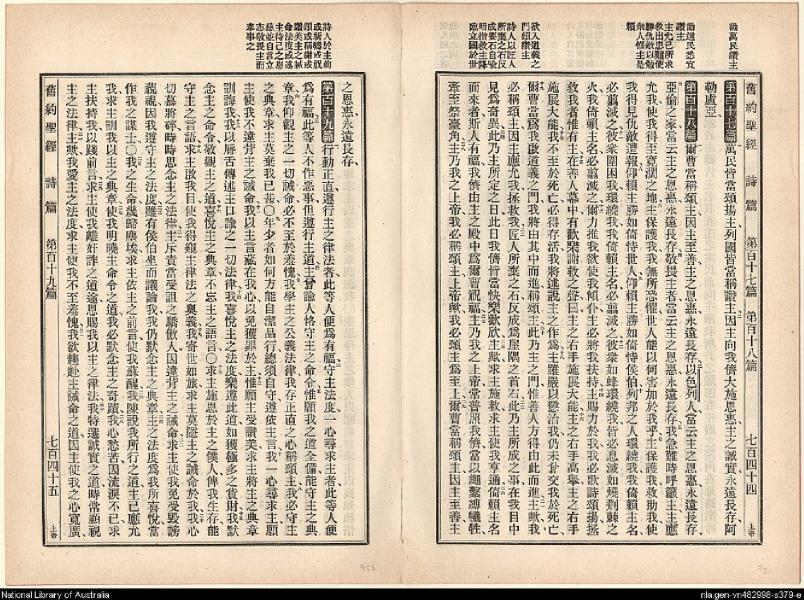 勸萬民讚主
勸選民悉宜讚主
舊約聖經 詩篇 第百十七篇 第百十八篇 七百四十四 上帝
第百十七篇 萬民皆當頌揚主列國皆當稱讚主因主向我儕大施恩惠主之誠實永遠長存阿
勒盧亞
第百十八篇 爾曹當稱頌主因主至善主之恩惠永遠長存以色列人當云主之恩惠永遠長存
亞倫之家當云主之恩惠永遠長存敬畏主者當云主之恩惠永遠長存我急難時呼籲主主應
允我使我得至寬濶之地主保護我我無所恐懼世人能以何害加於我乎主保護我救助我使
我得見仇敵遭報仰賴主勝如倚恃世人仰賴主勝如倚恃侯伯列邦之人環繞我我倚賴主名
必翦滅之彼衆圍困我環繞我我倚賴主名必翦滅之彼衆如蜂環繞我皆必息滅如焚荊棘之
火我倚賴主名必翦滅之
救我者惟有主在善人幕中有歡樂謝救之聲曰主之右手施展大能主之右手高舉主之右手
施展大能我不至於死必得存活我將述說主之作爲主雖嚴以懲治我仍未付交我於死亡
爾曹當爲我啟道義之門我將由其中而進稱頌主此乃主之門惟善人方得由此而進主歟我
必稱頌主因主應允我拯救我匠人所棄之石反成爲屋隅之首石此乃主所成之事在我目中
見爲奇異此乃主所定之日此日我儕皆當快樂歡欣主歟求主施救求主使我亨通倚賴主名
而來者斯人有福我儕由主之殿中爲爾曹祝福主乃我之上帝常普照我儕當以繩繫縛犧牲
牽至祭臺角主乃我之上帝我必稱頌主上帝歟我必頌主爲至上爾曹當稱頌主因主至善主
之恩惠永遠長存
第百十九篇 行動正直遵行主之律法者此等人便爲有福守主法度一心尋求主者此等人便
爲有福此等人不作惡事但遵行主道主曾諭人恪守主之命令惟願我之道全備能守主之典
章我仰觀主之一切誡命必不至於羞愧我學主之公義法律我存正直之心稱頌主我必守主
之典章求主莫棄我已甚〇年少者如何方能自潔品行總須自守遵依主言我一心尋求主願
主使我不違背主之誡命我以主言藏在我心以免獲罪於主惟願主受讚美求主將主之典章
訓誨我我以唇舌傳述主口諭之一切法律我喜悅主之法度樂遵此道如獲極多之貨財我默
念主之命令敬觀主之道喜悅主之典章不忘主之語言〇求主施恩於主之僕人俾我生存能
守主之言語求主啟我目使我得窺主律法之奧義我寄世如旅求主莫隱主之誡命於我我心
切慕將碎時時思念主之法律主斥責當受詛之驕傲人因違背主之誡命求主使我免受毀謗
藐視因我遵守主之法度雖有侯伯坐而議論我我仍默念主之典章主之法度爲我所喜悅當
作我之謀士〇我之生命幾歸塵埃求主依主之前言使我蘇醒我陳說我所行之道主已應允
我求主訓我以主之典章使我明曉主命令之道我必默念主之奇蹟我心愁苦因流淚不已求
主扶持我以踐前言求主使我離奸詐之道途恩賜我以主之律法我特選誠實之道時常顧視
主之法律主歟我愛主之法度求主使我不至羞愧我欲轉赴主誡命之道因主使我之心寬廣
舊約聖經 詩篇 第百十九篇 七百四十五 上帝
National Library of Australia
nla.gen-vn482998-s379-e